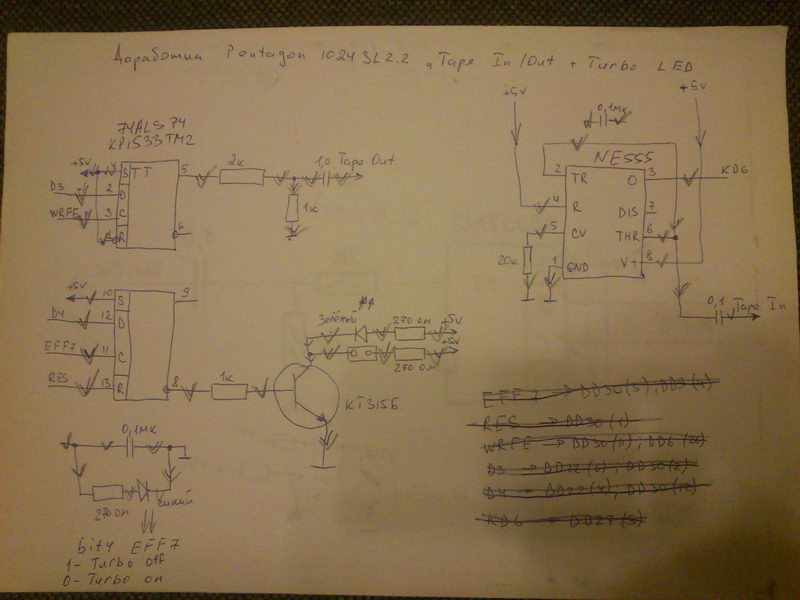 Доработка Pentagon 1024SL2.2 "Tape In/Out + Turbo LED
74ALS74
КР1533ТМ2
+5V
4
S
TT
5
2К
1,0
Tape Out
D3
2
D
WRFE
3
C
1К
1
R
6
+5V
10
S
9
D4
12
D
EFF7
11
C
RES
13
R
8
1К
Зелёный
270 Ом
+5V
+5V
270 Ом
КТ315Б
0,1МК
270 Ом
синий
Bit4 EFF7
1- Turbo Off
0- Turbo on
+5V
0,1МК
+5V
NE555
2
TR
O
3
KD6
4
R
DIS
7
5
CV
THR
6
20К
1
GND
V+
8
0,1
Tape In
EFF7 → DD30(3); DD9(4)
RES → DD30(1)
WRFE → DD30(11); DD6(22)
D3 → DD22(6); DD30(2)
D4 → DD22(4); DD30(12)
KD6 → DD27(5)